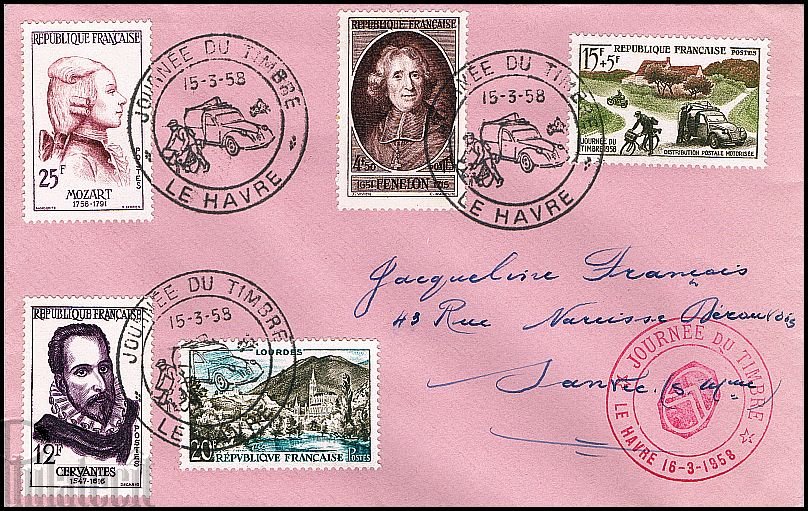 RÉPUBLIQUE FRANÇAISE
25F
POSTES
MOZART
1756-1791
JOURNÉE DU TIMBRE
15-3-58
LE HAVRE
RÉPUBLIQUE FRANÇAISE
4F50
1651 FENELON 1715
JOURNÉE DU TIMBRE
15-3-58
LE HAVRE
15F+5F RÉPUBLIQUE FRANÇAISE POSTES
JOURNÉE DU
TIMBRE 1958
DISTRIBUTION POSTALE MOTORISÉE
Jacqueline François
43 Rue Narcisse
Sanvic
RÉPUBLIQUE FRANÇAISE
12F
POSTES
CERVANTES
1547-1616
JOURNÉE DU TIMBRE
15-3-58
LE
LOURDES
20F RÉPVBLIQVE FRANÇAISE POSTES
JOURNÉE DU TIMBRE
LE HAVRE 16-3-1958